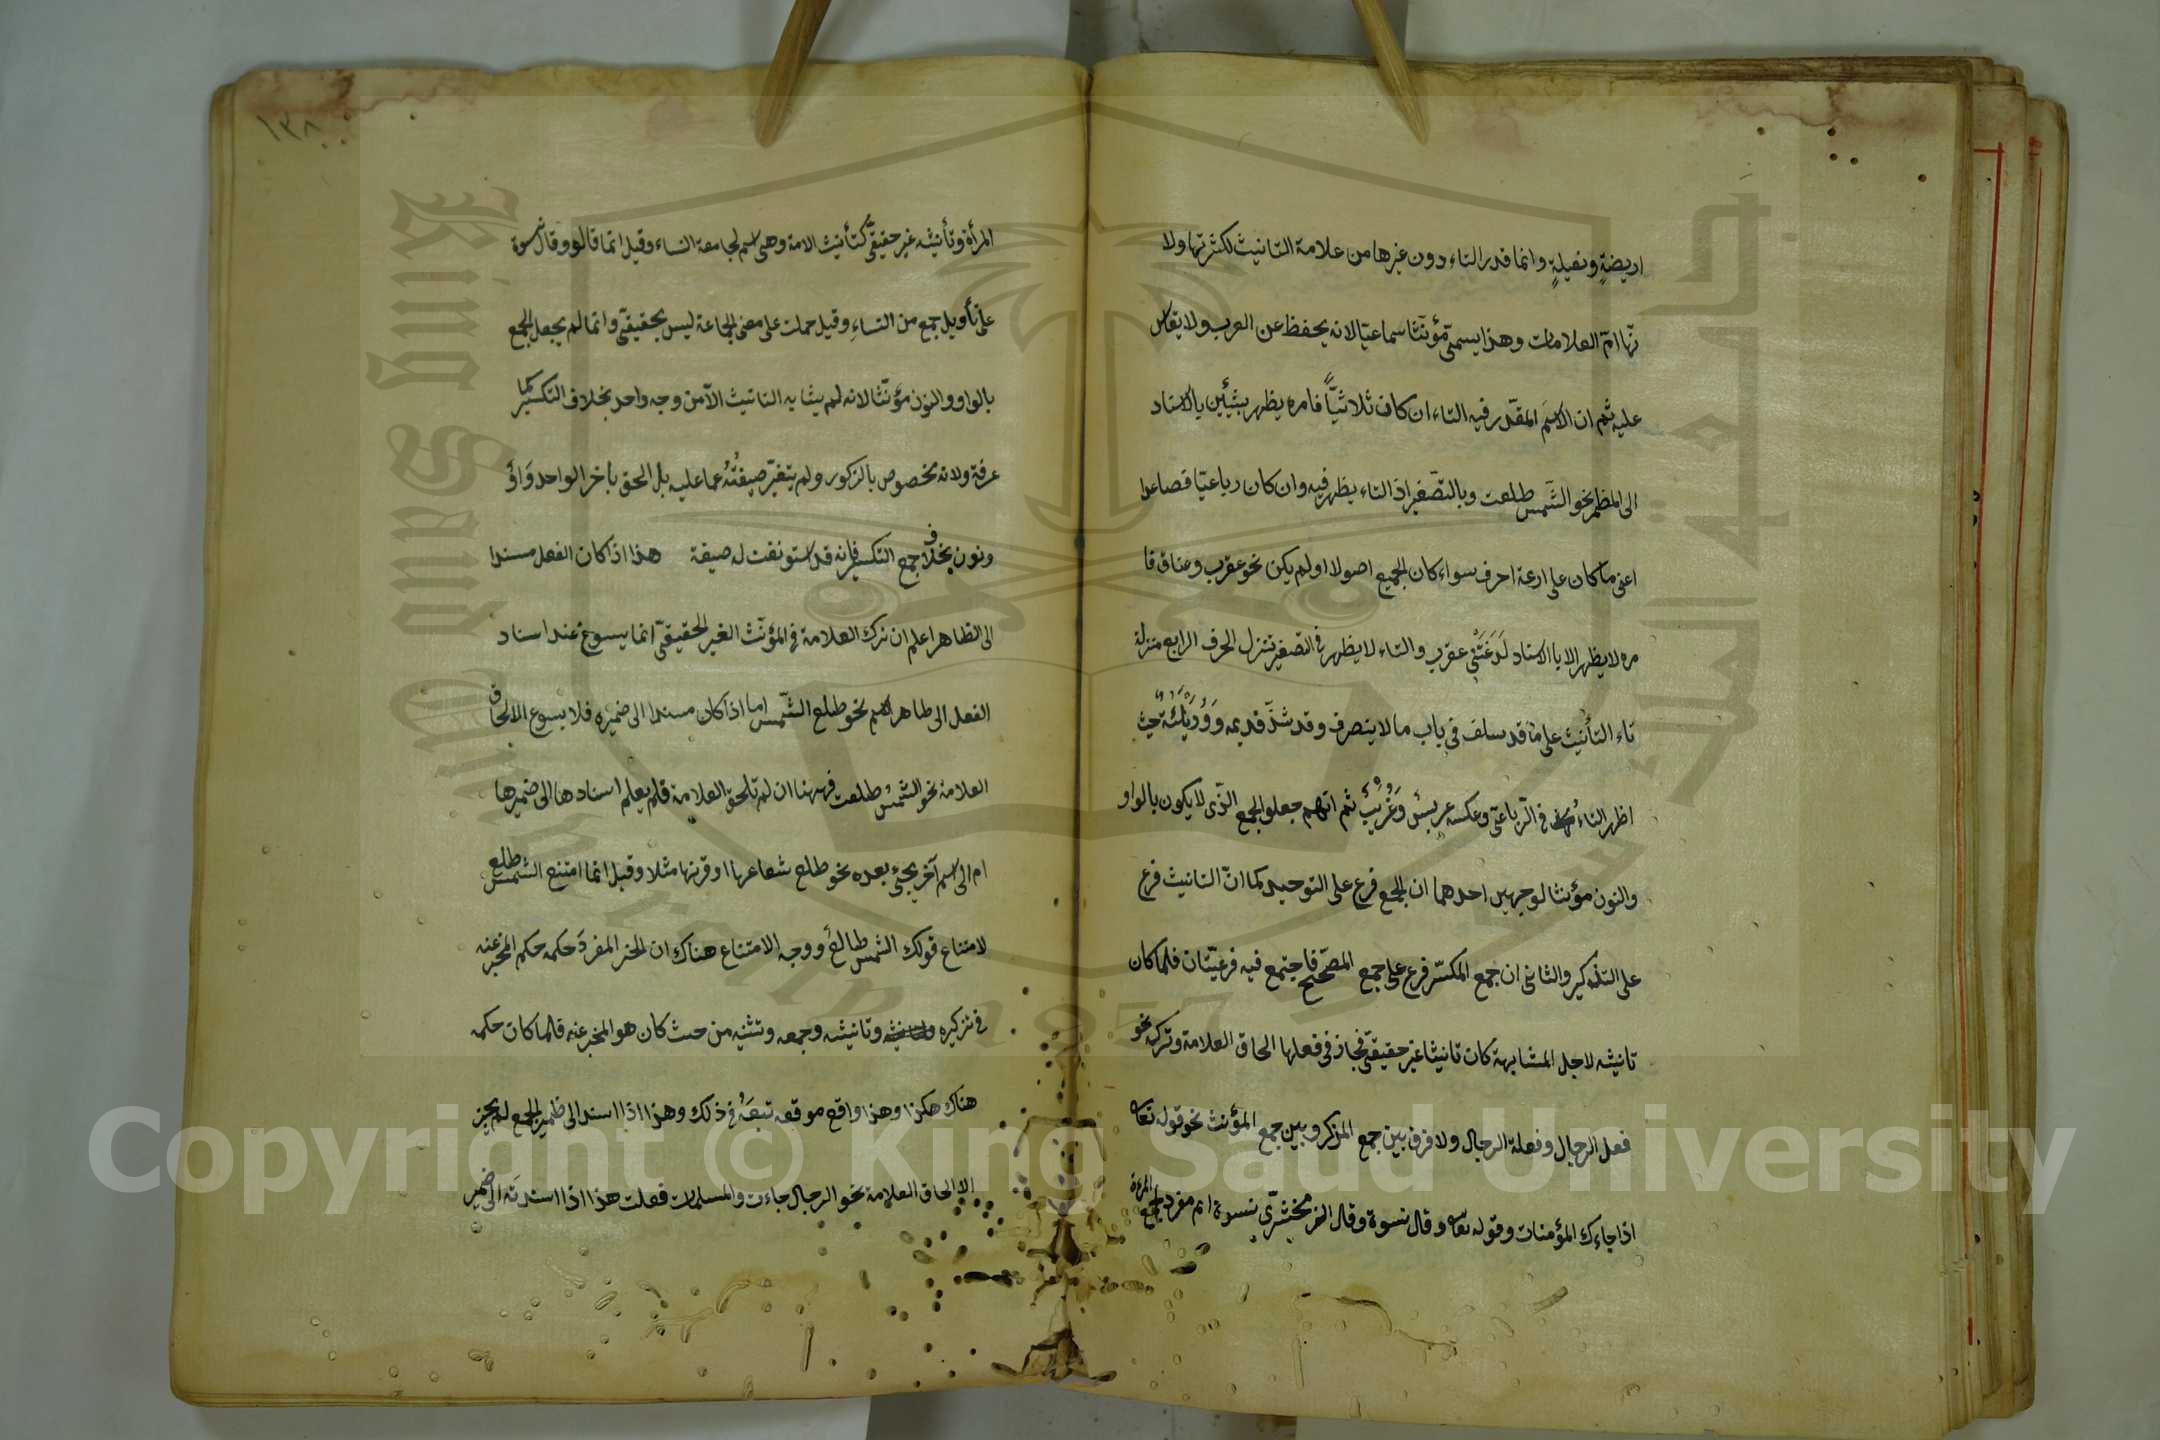 اريضةٍ ونعيلةٍ وانما قدر التاء دون غيرها من علامة التانيث لكثرتها ولا
نّها امّ العلامات وهذا يسمىّ مؤنّثا سماعيّا لانه يحفظ عن العرب ولا يقاس
عليه ثم ان الاسمَ المقدّر فيه التاء ان كان ثلاثيّاً فامره يظهر بشيئين بالاسناد
الى المظهر نحو الشّمس طلعت وبالتصّغير اذ التاء يظهر فيه وان كان رباعيّا فصاعدا
اعنى ما كان على اربعة احرف سواء كان الجميع اصولا او لم يكن نحو عقرب وعناق فا
مره لا يظهر الا بالاسناد لَدَغَتْنى عقرب والتاء لا يظهر فى التصّغير تنزل الحرف الرابع منزلة
تاء التأنيث على ما قد سلف فى باب ما لا ينصرف وقد شذّ قديمه وَوُرَيّئَةٌ حيث
اظهر التاءُ فى الرّباعىّ وعكسه عريسٌ وَعُرَيْبٌ ثم انهم جعلوا الجمع الذّى لا يكون بالواو
والنون مؤنثا لوجهين احدهما ان الجمع فرع على التوحيد كما انّ التانيث فرع
على التذكير والثانى ان جمع المكسّر فرع على جمع المصّحح فاجتمع فيه فرعيّتان فلما كان
تانيثه لاجل المشابهة كان تانيثا غير حقيقىّ فجاز فى فعلها الحاق العلامة وتركه نحو
فعل الرجال وفعلة الرجال ولا فرق بين جمع المذكر وبين جمع المؤنث نحو قوله تعا
اذا جاءك المؤمنات وقوله تعا وقال نسوة وقال الزمخشرّى نسوة اسم مفرد لجمع المرءة
١٣٨
المرأة وتأنيثه غير حقيقىّ كتأنيث الامة وهى اسم لجامعة النساء وقيل انما قالوا وقال نسوة
على تأويل جمع من النساءِ وقيل حملت على معنى الجماعة ليس بحقيقىّ وانما لم يجعل الجمع
بالواو والنون مؤنّثا لانه لم يشابه التانيث الاّ من وجه واحد بخلاف التكسير كما
عرفة ولانه مخصوص بالذكور ولم يتغيّر صيغتُهُ عما عليه بل الحق بآخر الواحد وَاوٌ
ونون بخلاف جمع التكسير فإنه قد استونفت له صيغة هذا اذا كان الفعل مسندا
الى الظاهر اعلم ان ترك العلامة فى المؤنّث الغير الحقيقىّ انما يسوغ عند اسناد
الفعل الى ظاهر اسم نحو طلع الشّمس اما اذا كان مسندا الى ضميره فلا يسوغ الا الحاق
العلامة نحو الشمس طلعت فههنا ان لم تلحق العلامة فلم يعلم اسنادها الى ضميرها
ام الى اسم آخر يجىء بعده نحو طلع شعاعها او قرنها مثلا وقيل انما امتنع الشمس طلع
لامتناع قولك الشمس طالع ووجه الامتناع هناك ان الخبر المفردَ حكمه حكم المخبر عنه
فى تذكيره وتانيثه وجمعه وتثنيه من حيث كان هو المخبر عنه فلما كان حكمه
هناك هكذا وهذا واقع موقعه تبعَهُ فى ذلك وهذا اذا اسند الى ضمير الجمع لم يجز
الا الحاق العلامة نحو الرجال جاءت والمسلمات فعلت هذا اذا اسندته الى ضمير
Copyright © King Saud University